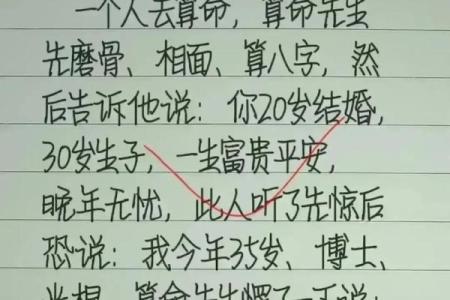 一个人去算命，算命先生
先磨骨、相面、算八字，然
后告诉他说：你20岁结婚，
30岁生子，一生富贵平安，
晚年无忧，此人听了先惊后
恐说：我今年35岁、博士、
光棍、算命先生愣了一下说：